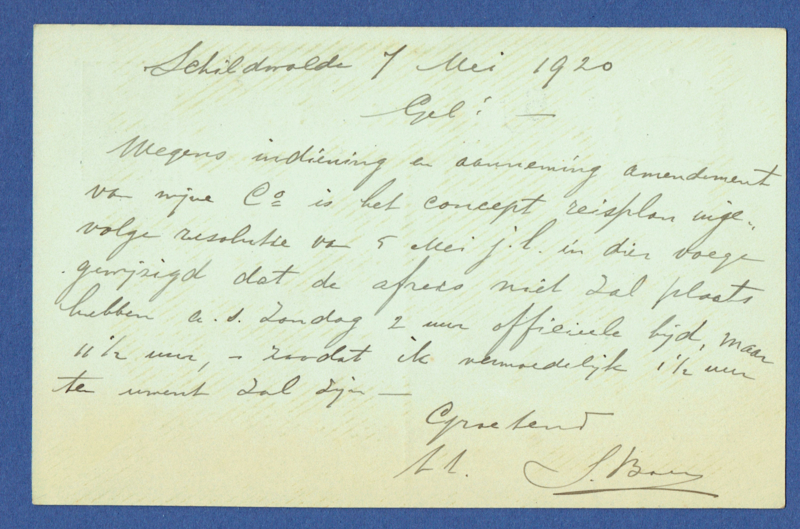 Schildwolde 7 Mei 1920
Gel! —
Wegens indiening en aanneming amendement
van mijne Co is het concept reisplan inge-
volge resolutie van 5 Mei j.l. in dier voege
gewijzigd dat de afreis niet zal plaats
hebben a.s. Zondag 2 uur officieele tijd, maar
11½ uur, – zoodat ik vermoedelijk 1½ uur
te uwent zal zijn —
Groetend
t.t. S. Boer